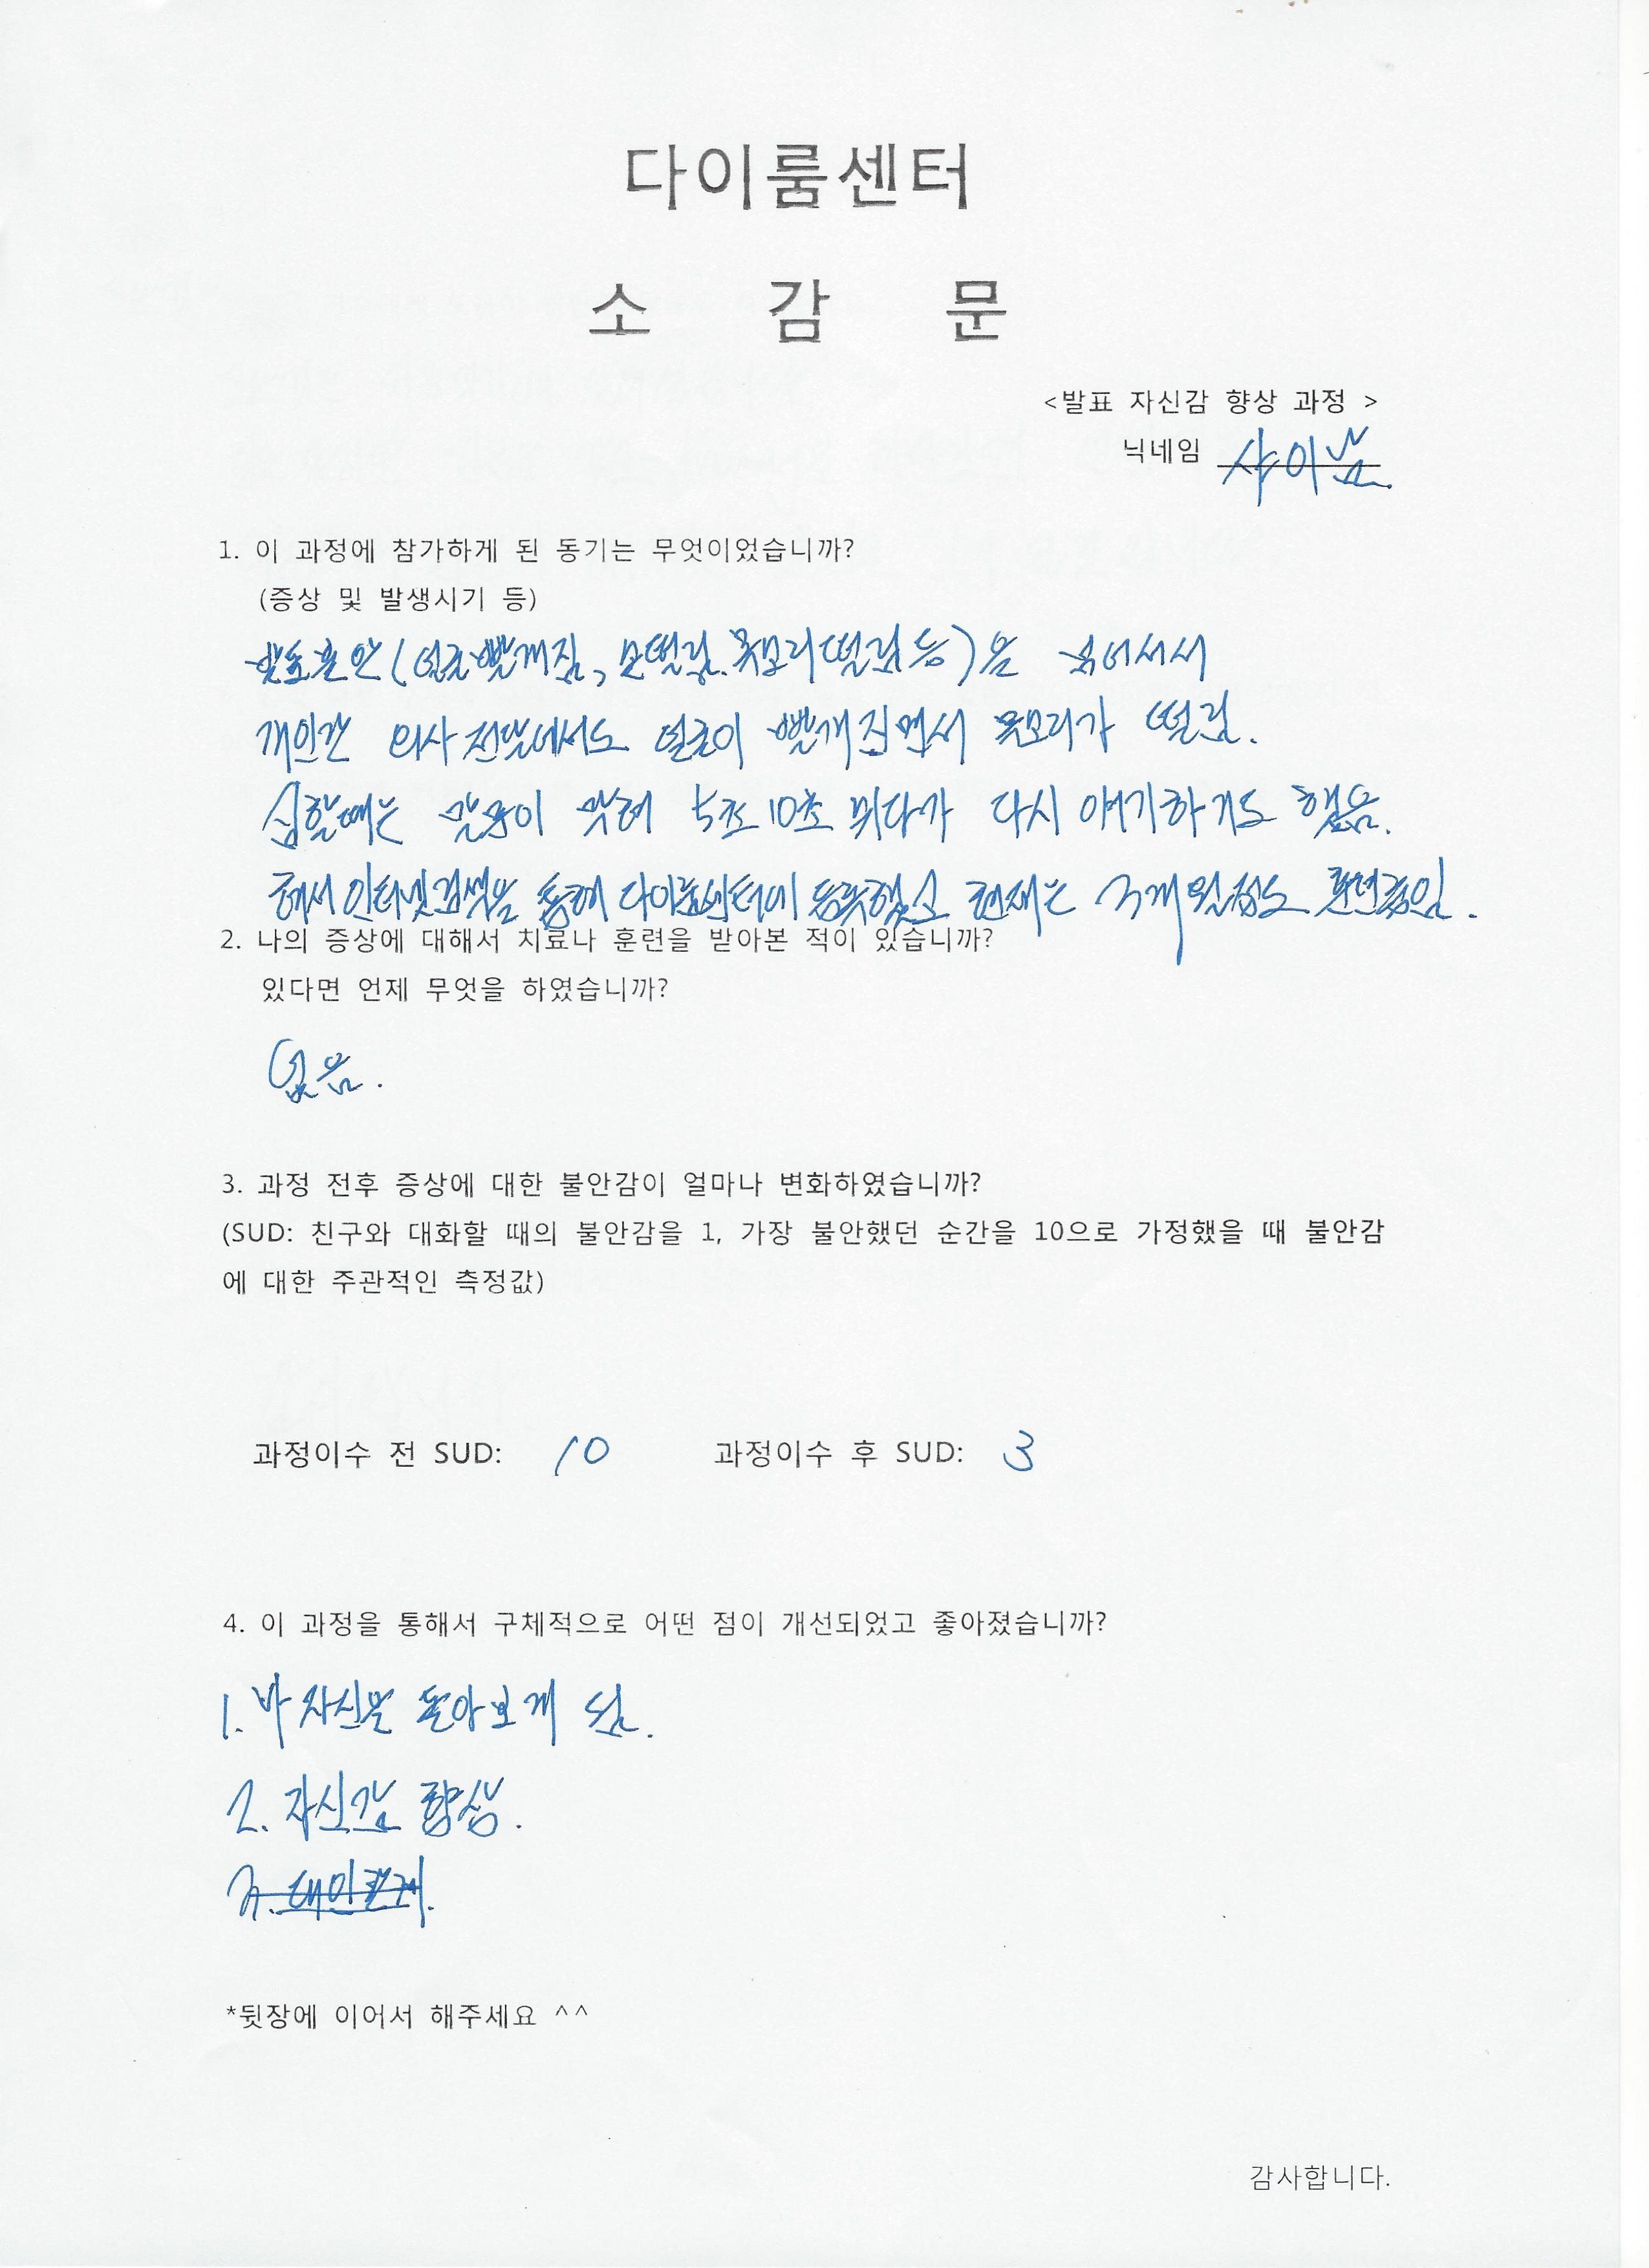 다이룸센터
소 감 문
<발표 자신감 향상 과정 >
닉네임 샤이닝
1. 이 과정에 참가하게 된 동기는 무엇이었습니까?
(증상 및 발생시기 등)
발표불안(얼굴빨개짐, 몸떨림. 목소리떨림 등)을 넘어서서
개인간 의사전달에서도 얼굴이 빨개지면서 목소리가 떨림.
심할때는 말문이 막혀 5초 10초 쉬다가 다시 얘기하기도 했음.
해서 인터넷검색을 통해 다이룸센터에 등록했고 현재는 3개월정도 훈련중임.
2. 나의 증상에 대해서 치료나 훈련을 받아본 적이 있습니까?
있다면 언제 무엇을 하였습니까?
없음.
3. 과정 전후 증상에 대한 불안감이 얼마나 변화하였습니까?
(SUD: 친구와 대화할 때의 불안감을 1, 가장 불안했던 순간을 10으로 가정했을 때 불안감
에 대한 주관적인 측정값)
과정이수 전 SUD: 10 과정이수 후 SUD: 3
4. 이 과정을 통해서 구체적으로 어떤 점이 개선되었고 좋아졌습니까?
1. 나 자신을 돌아보게 됨.
2. 자신감 향상.
3. 대인관계.
*뒷장에 이어서 해주세요 ^^
감사합니다.